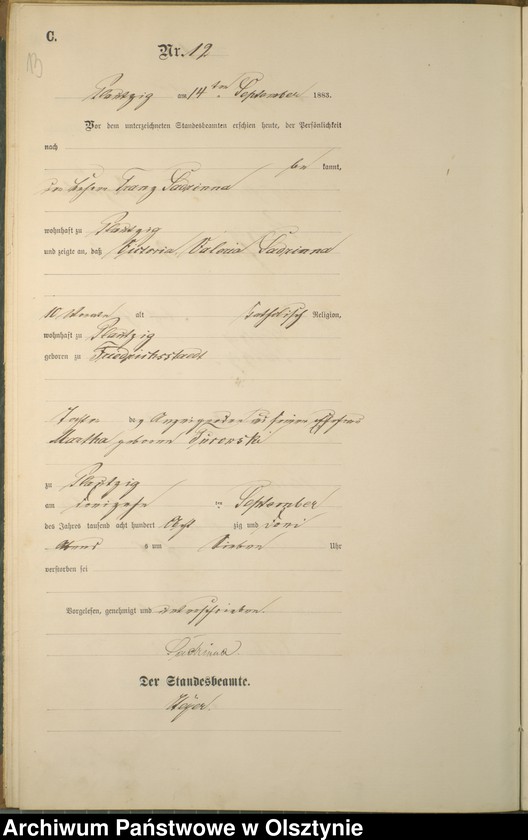 C.
13
Nr. 12
am 14ten September 1883.
Vor dem unterzeichneten Standesbeamten erschien heute, der Persönlichkeit
nach
be kannt,
der Lehrer Franz
wohnhaft zu
und zeigte an, daß Victoria Valeria
10 Wochen alt katholisch Religion,
wohnhaft zu
geboren zu Friedrichsstadt
Tochter des Anzeigenden und seiner Ehefrau
Martha geborene Turowski
zu
am dreizehn ten September
des Jahres tausend acht hundert acht zig und drei
Abends um sieben Uhr
verstorben sei
Vorgelesen, genehmigt und unterschrieben
Der Standesbeamte.
Archiwum Państwowe w Olsztynie